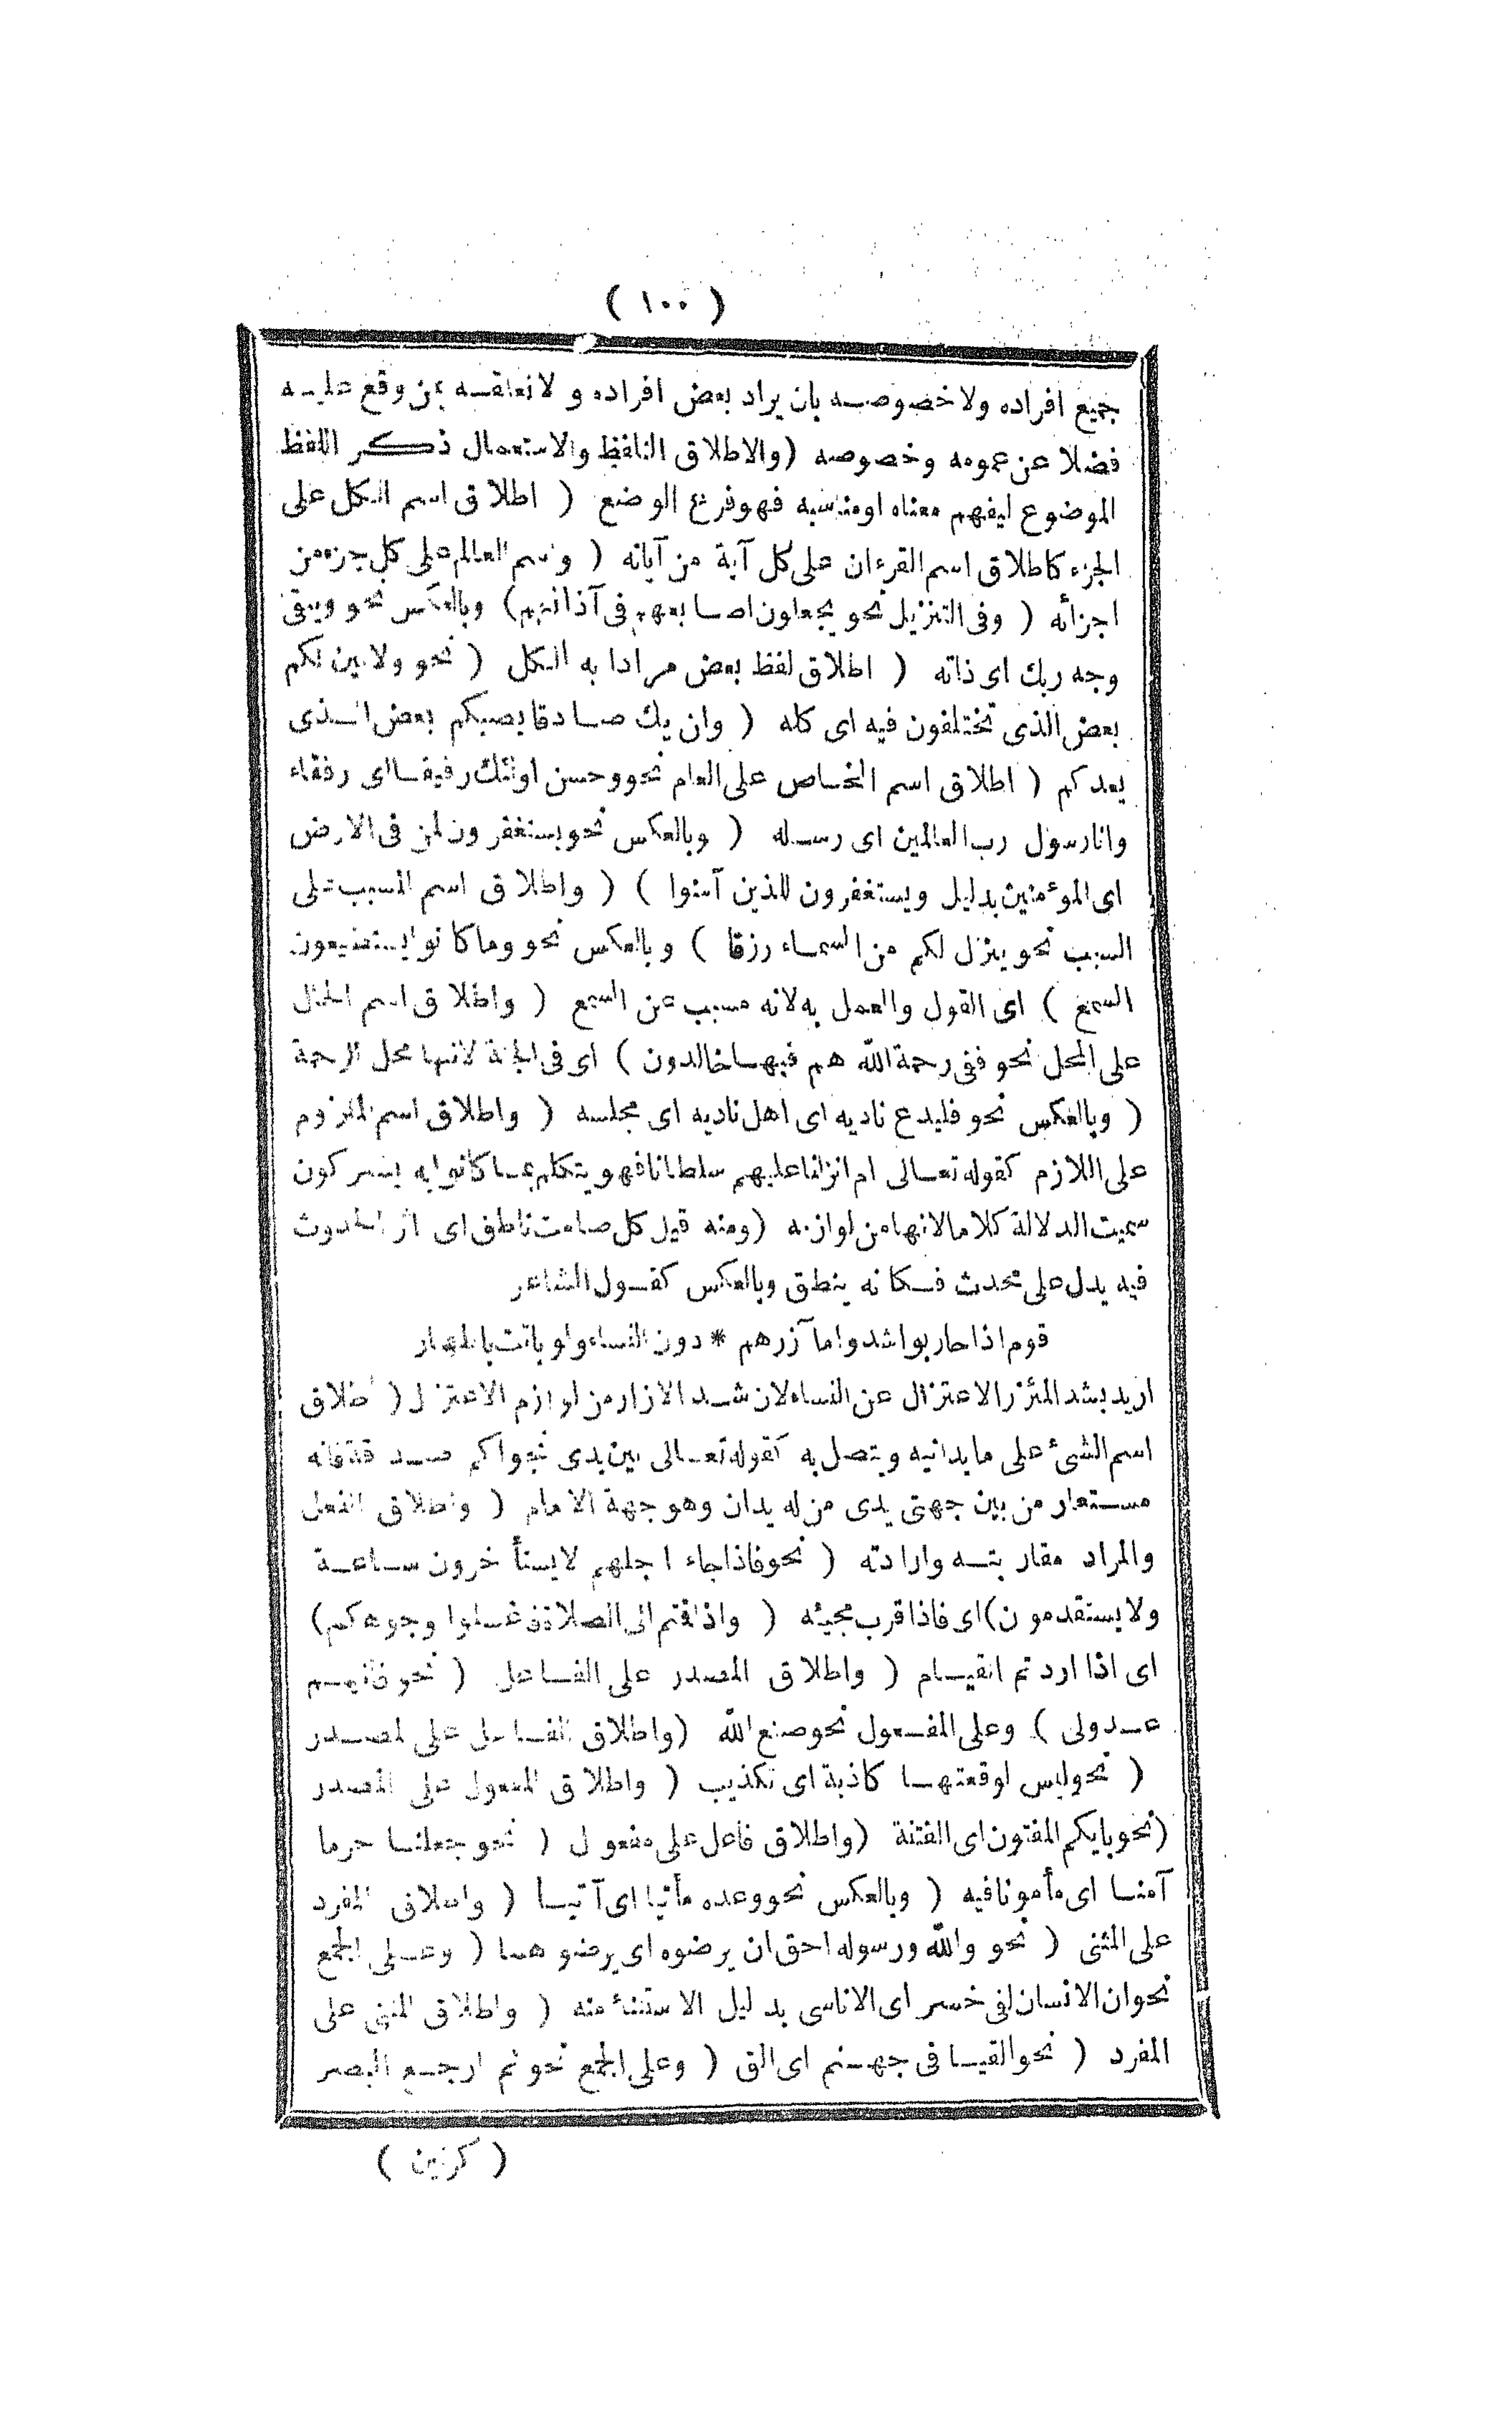 ( ١٠٠ )
جميع افراده ولا خصوصه بان يراد بعض افراده و لا تعلقه بمن وقع عليه
فضلا عن عمومه وخصوصه (والاطلاق التلفظ والاستعمال ذكر اللفظ
الموضوع ليفهم معناه او مناسبه فهو فرع الوضع ( اطلاق اسم الكل على
الجزء كاطلاق اسم القرءان على كل آية من آياته ( واسم العالم على كل جزء من
اجزائه ( وفى التنزيل نحو يجعلون اصابعهم فى آذانهم) وبالعكس نحو ويبقى
وجه ربك اى ذاته ( اطلاق لفظ بعض مرادا به الكل ( نحو ولابين لكم
بعض الذى تختلفون فيه اى كله ( وان يك صادقا يصبكم بعض الذى
يعدكم ( اطلاق اسم الخاص على العام نحو وحسن اولئك رفيقا اى رفقاء
وانا رسول رب العالمين اى رسله ( وبالعكس نحو يستغفرون لمن فى الارض
اى المؤمنين بدليل ويستغفرون للذين آمنوا ) ( واطلاق اسم المسبب على
السبب نحو ينزل لكم من السماء رزقا ) وبالعكس نحو وما كانوا يستطيعون
السمع ) اى القول والعمل به لانه مسبب عن السمع ( واطلاق اسم الحال
على المحل نحو ففى رحمة الله هم فيها خالدون ) اى فى الجنة لانها محل الرحمة
( وبالعكس نحو فليدع ناديه اى اهل ناديه اى مجلسه ( واطلاق اسم الملزوم
على اللازم كقوله تعالى ام انزلنا عليهم سلطانا فهو يتكلم بما كانوا به يشركون
سميت الدلالة كلاما لانها من لوازمه (ومنه قيل كل صامت ناطق اى اثر الحدوث
فيه يدل على محدث فكانه ينطق وبالعكس كقول الشاعر
قوم اذا حاربوا شدوا مآزرهم * دون النساء ولو باتت باطهار
اريد بشد المئزر الاعتزال عن النساء لان شد الازار من لوازم الاعتزال ( اطلاق
اسم الشئ على ما يدانيه ويتصل به كقوله تعالى بين يدى نجواكم صدقة فانه
مستعار من بين جهتى يدى من له يدان وهو جهة الامام ( واطلاق الفعل
والمراد مقاربته وارادته ( نحو فاذا جاء اجلهم لا يستأخرون ساعة
ولا يستقدمون) اى فاذا قرب مجيئه ( واذا قتم الى الصلاة فاغسلوا وجوهكم)
اى اذا اردتم القيام ( واطلاق المصدر على الفاعل ( نحو فانهم
عدولى ) وعلى المفعول نحو صنع الله (واطلاق الفاعل على المصدر
( نحو ليس لوقعتها كاذبة اى تكذيب ( واطلاق المفعول على المصدر
(نحو بايكم المفتون اى الفتنة (واطلاق فاعل على مفعول ( نحو جعلنا حرما
آمنا اى مأمونا فيه ( وبالعكس نحو وعده مأتيا اى آتيا ( واطلاق المفرد
على المثنى ( نحو والله ورسوله احق ان يرضوه اى يرضوهما ( وعلى الجمع
نحو ان الانسان لفى خسر اى الاناسى بدليل الاستثناء منه ( واطلاق المثنى على
المفرد ( نحو القيا فى جهنم اى الق ( وعلى الجمع نحو ثم ارجع البصر
( كرتين )